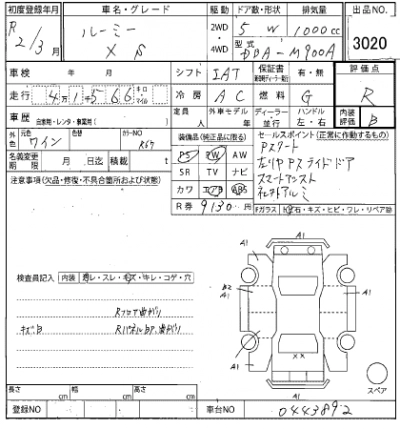 初度登録年月 車名・グレード 駆動 ドア数・形状 排気量 出品NO
R2/3月 ルーミー 2WD 5 W 1000cc 3020
X S ・4WD 型式 DBA-M900A
車検 年 月 シフト IAT 保証書 有・無 評価点
走行 4万1千566 キロ マイル 冷房 AC 燃料 G R
車歴 自家用・レンタ・事業用( ) 定員 人 外車モデル 年 ディーラー・並行 ハンドル 左・右 内装評価 B
外色 元色 ワイン 色替 カラーNO R67
装備品(純正品に限る) セールスポイント(正常に作動するもの)
名義変更期限 月 日迄 積載 t
PS PW AW
SR TV ナビ
カワ エアB ABS
R券 9130円
Pスタート
左リヤPスライドドア
スマートアシスト
社外アルミ
注意事項(欠品・修復・不具合箇所および状態)
Fガラス 飛石・キズ・ヒビ・ワレ・リペア跡
検査員記入 内装 汚レ・スレ・キズ・キレ・コゲ・穴
Rフロア曲がり
キズB RパネルBP、曲がり
A1
A1
B2
A1
A1
A1
XX
A1
A1
スペア
長さ cm 幅 cm 高さ cm
登録NO 車台NO 0443892